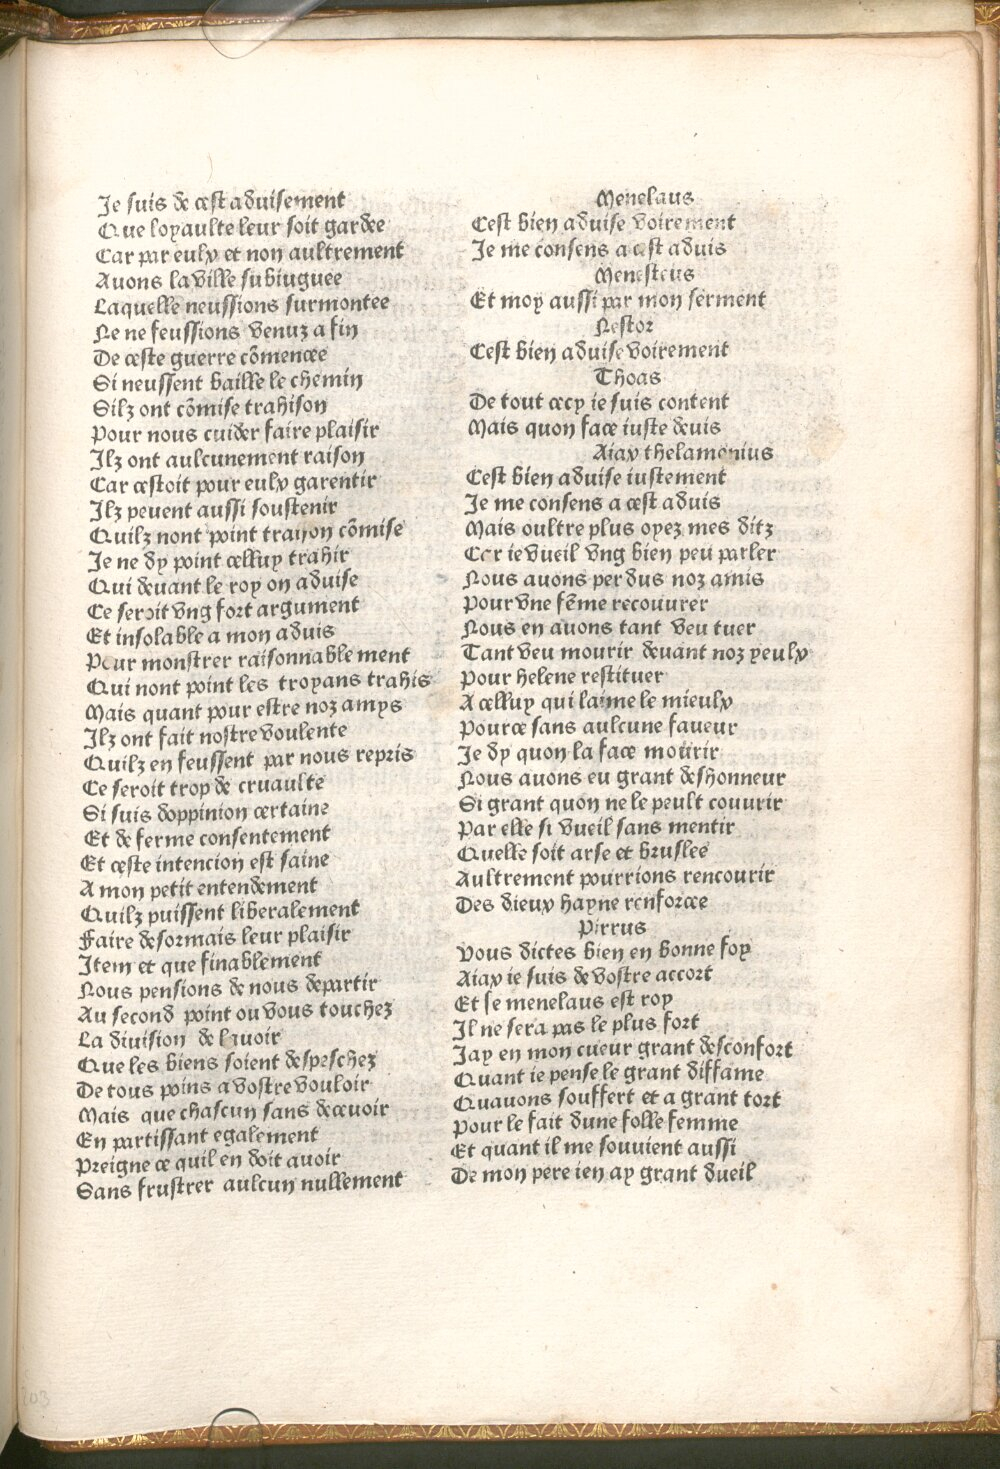 Je suis de cest aduisement
Que loyaulte leur soit gardee
Car par eulx et non aultrement
Auons la ville subiuguee
Laquelle neussions surmontee
Ne ne feussions venuz a fin
De ceste guerre cõmencee
Si neussent baille le chemin
Silz ont cõmise trahison
Pour nous cuider faire plaisir
Ilz ont aulcunement raison
Car cestoit pour eulx garentir
Ilz peuent aussi soustenir
Quilz nont point traison cõmise
Je ne dy point celluy trahir
Qui deuant le roy on aduise
Ce seroit vng fort argument
Et insolable a mon aduis
Pour monstrer raisonnablement
Qui nont point les troyans trahis
Mais quant pour estre noz amys
Ilz ont fait nostre voulente
Quilz en feussent par nous repris
Ce seroit trop de cruaulte
Si suis doppinion certaine
Et de ferme consentement
Et ceste intencion est saine
A mon petit entendement
Quilz puissent liberalement
Faire desormais leur plaisir
Item et que finablement
Nous pensions de nous departir
Au second point ou vous touchez
La diuision de lauoir
Que les biens soient despeschez
De tous poins a vostre vouloir
Mais que chascun sans deceuoir
En partissant egalement
Preigne ce quil en doit auoir
Sans frustrer aulcun nullement
Menelaus
Cest bien aduise voirement
Je me consens a cest aduis
Menesteus
Et moy aussi par mon serment
Nestor
Cest bien aduise voirement
Thoas
De tout cecy ie suis content
Mais quon face iuste deuis
Aiax thelamonius
Cest bien aduise iustement
Je me consens a cest aduis
Mais oultre plus oyez mes ditz
Car ie vueil vng bien peu parler
Nous auons perdus noz amis
Pour vne fẽme recouurer
Nous en auons tant veu tuer
Tant veu mourir deuant noz yeulx
Pour helene restituer
A celluy qui laime le mieulx
Pource sans aulcune faueur
Je dy quon la face mourir
Nous auons eu grant deshonneur
Si grant quon ne le peult couurir
Par elle si vueil sans mentir
Quelle soit arse et bruslee
Aultrement pourrions rencourir
Des dieux hayne renforcee
Pirrus
Vous dictes bien en bonne foy
Aiax ie suis de vostre accort
Et se menelaus est roy
Il ne sera pas le plus fort
Jay en mon cueur grant desconfort
Quant ie pense le grant diffame
Quauons souffert et a grant tort
Pour le fait dune folle femme
Et quant il me souuient aussi
De mon pere ien ay grant dueil
203